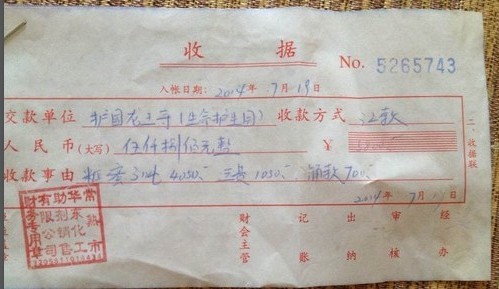 收 据
No. 5265743
入帐日期: 2014年7月1日
交款单位 护国龙王寺(生命护生园) 收款方式 汇款
人民币(大写) 伍仟捌佰元整 ¥
收款事由 4050 运费1050 700
2014年7月1
二、收据联
常熟市华东化工助剂销售有限公司财务专用章
财会主管 记账 出纳 审核 经办